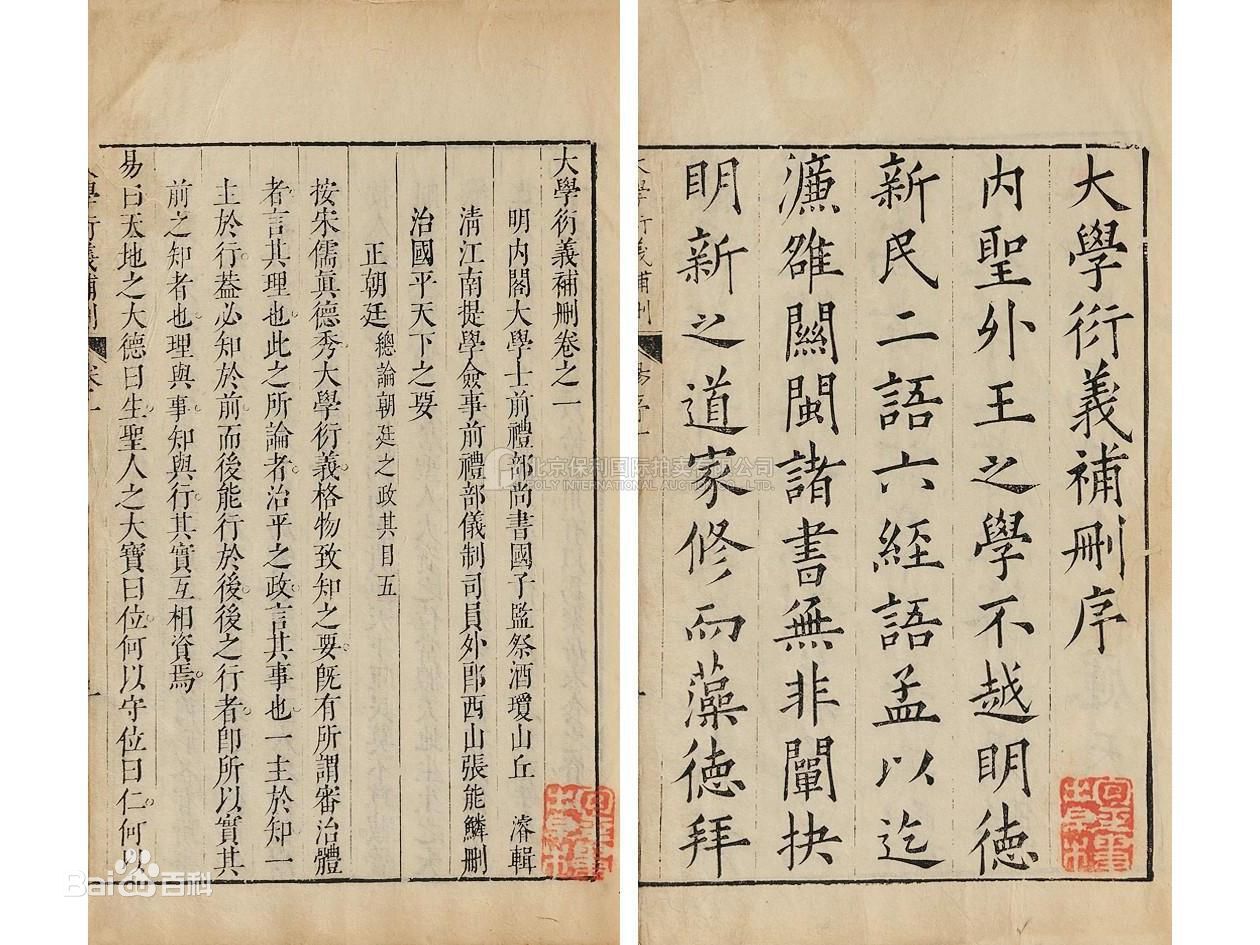 大學衍義補刪序
內聖外王之學不越明德
新民二語六經語孟以迄
濂雒關閩諸書無非闡抉
明新之道家修而藻德拜
大學衍義補刪卷之一
明內閣大學士前禮部尚書國子監祭酒瓊山丘 濬輯
清江南提學僉事前禮部儀制司員外郎西山張能鱗刪
治國平天下之要
正朝廷 總論朝廷之政其目五
按宋儒眞德秀大學衍義格物致知之要旣有所謂審治體
者言其理也此之所論者治平之政言其事也一主於知一
主於行葢必知於前而後能行於後後之行者卽所以實其
前之知者也理與事知與行其實互相資焉
易曰天地之大德曰生聖人之大寶曰位何以守位曰仁何以
北京保利国际拍卖有限公司
POLY INTERNATIONAL AUCTION CO., LTD.
Bai百科